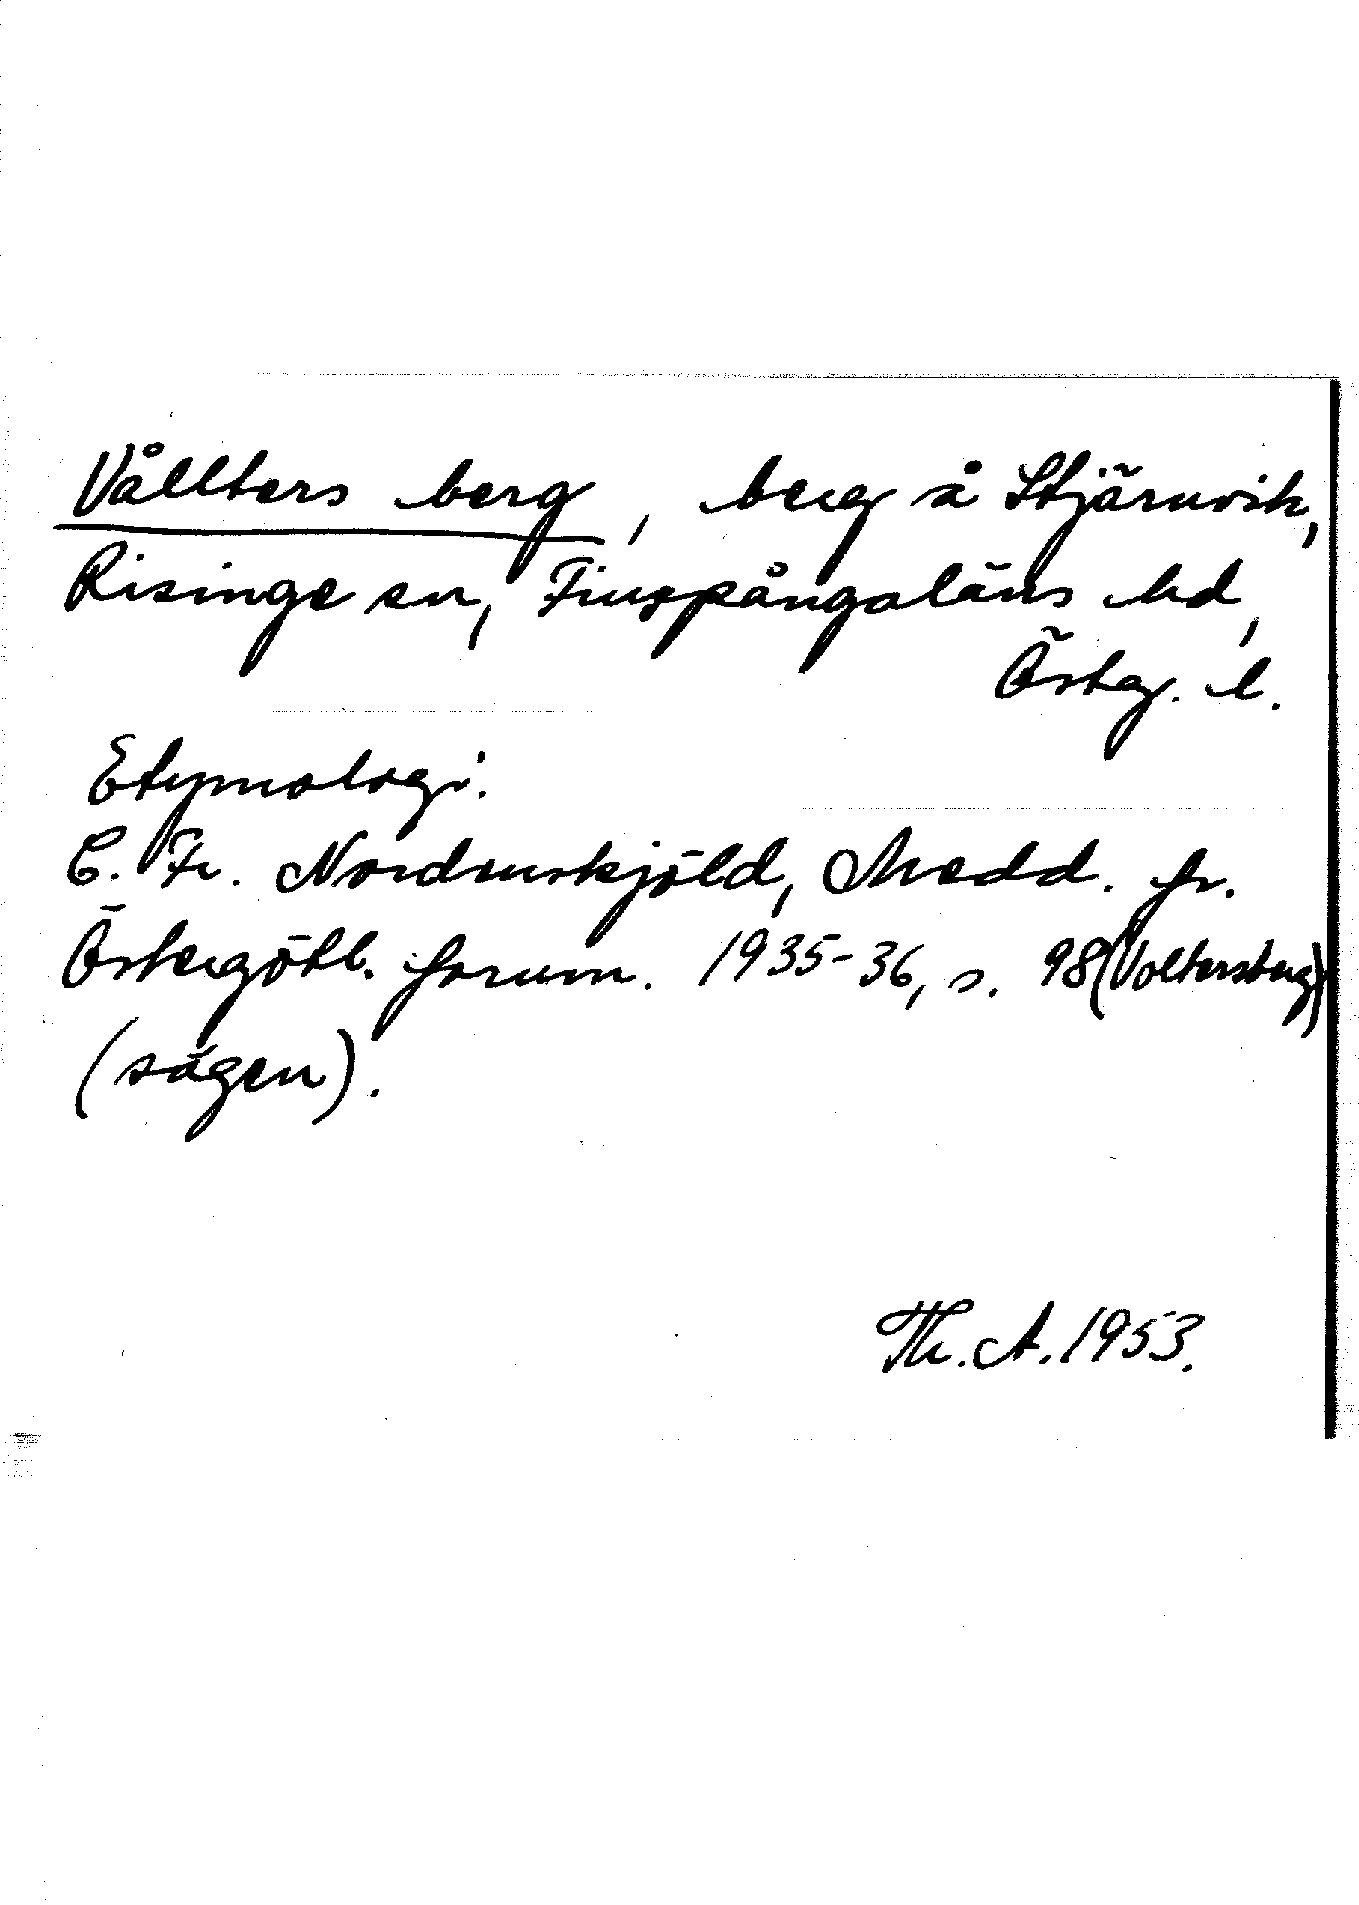 Vållters berg, berg å Stjärnvik,
Risinge sn, Finspångaläns hd,
Östg. l.
Etymologi.
C. Fr. Nordenskjöld, Medd. fr.
Östergötl. fornm. 1935-36, s. 98 (Voltersberg)
(sägen).
Th. A. 1953.